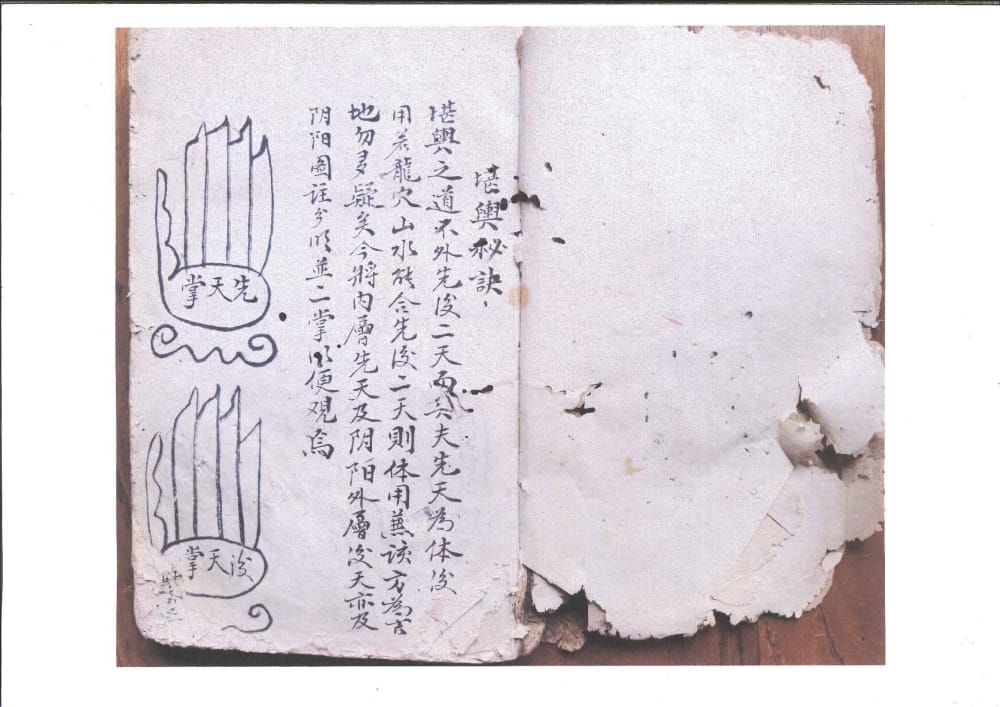 堪輿秘訣
堪輿之道不外先後二天而矣夫先天為体後
用若龍穴山水能合先後二天則体用兼該方為吉
地勿多疑矣今將内層先天及阴阳外層後天亦及
阴阳圖註分明並二掌以便观焉
先天掌
後天掌